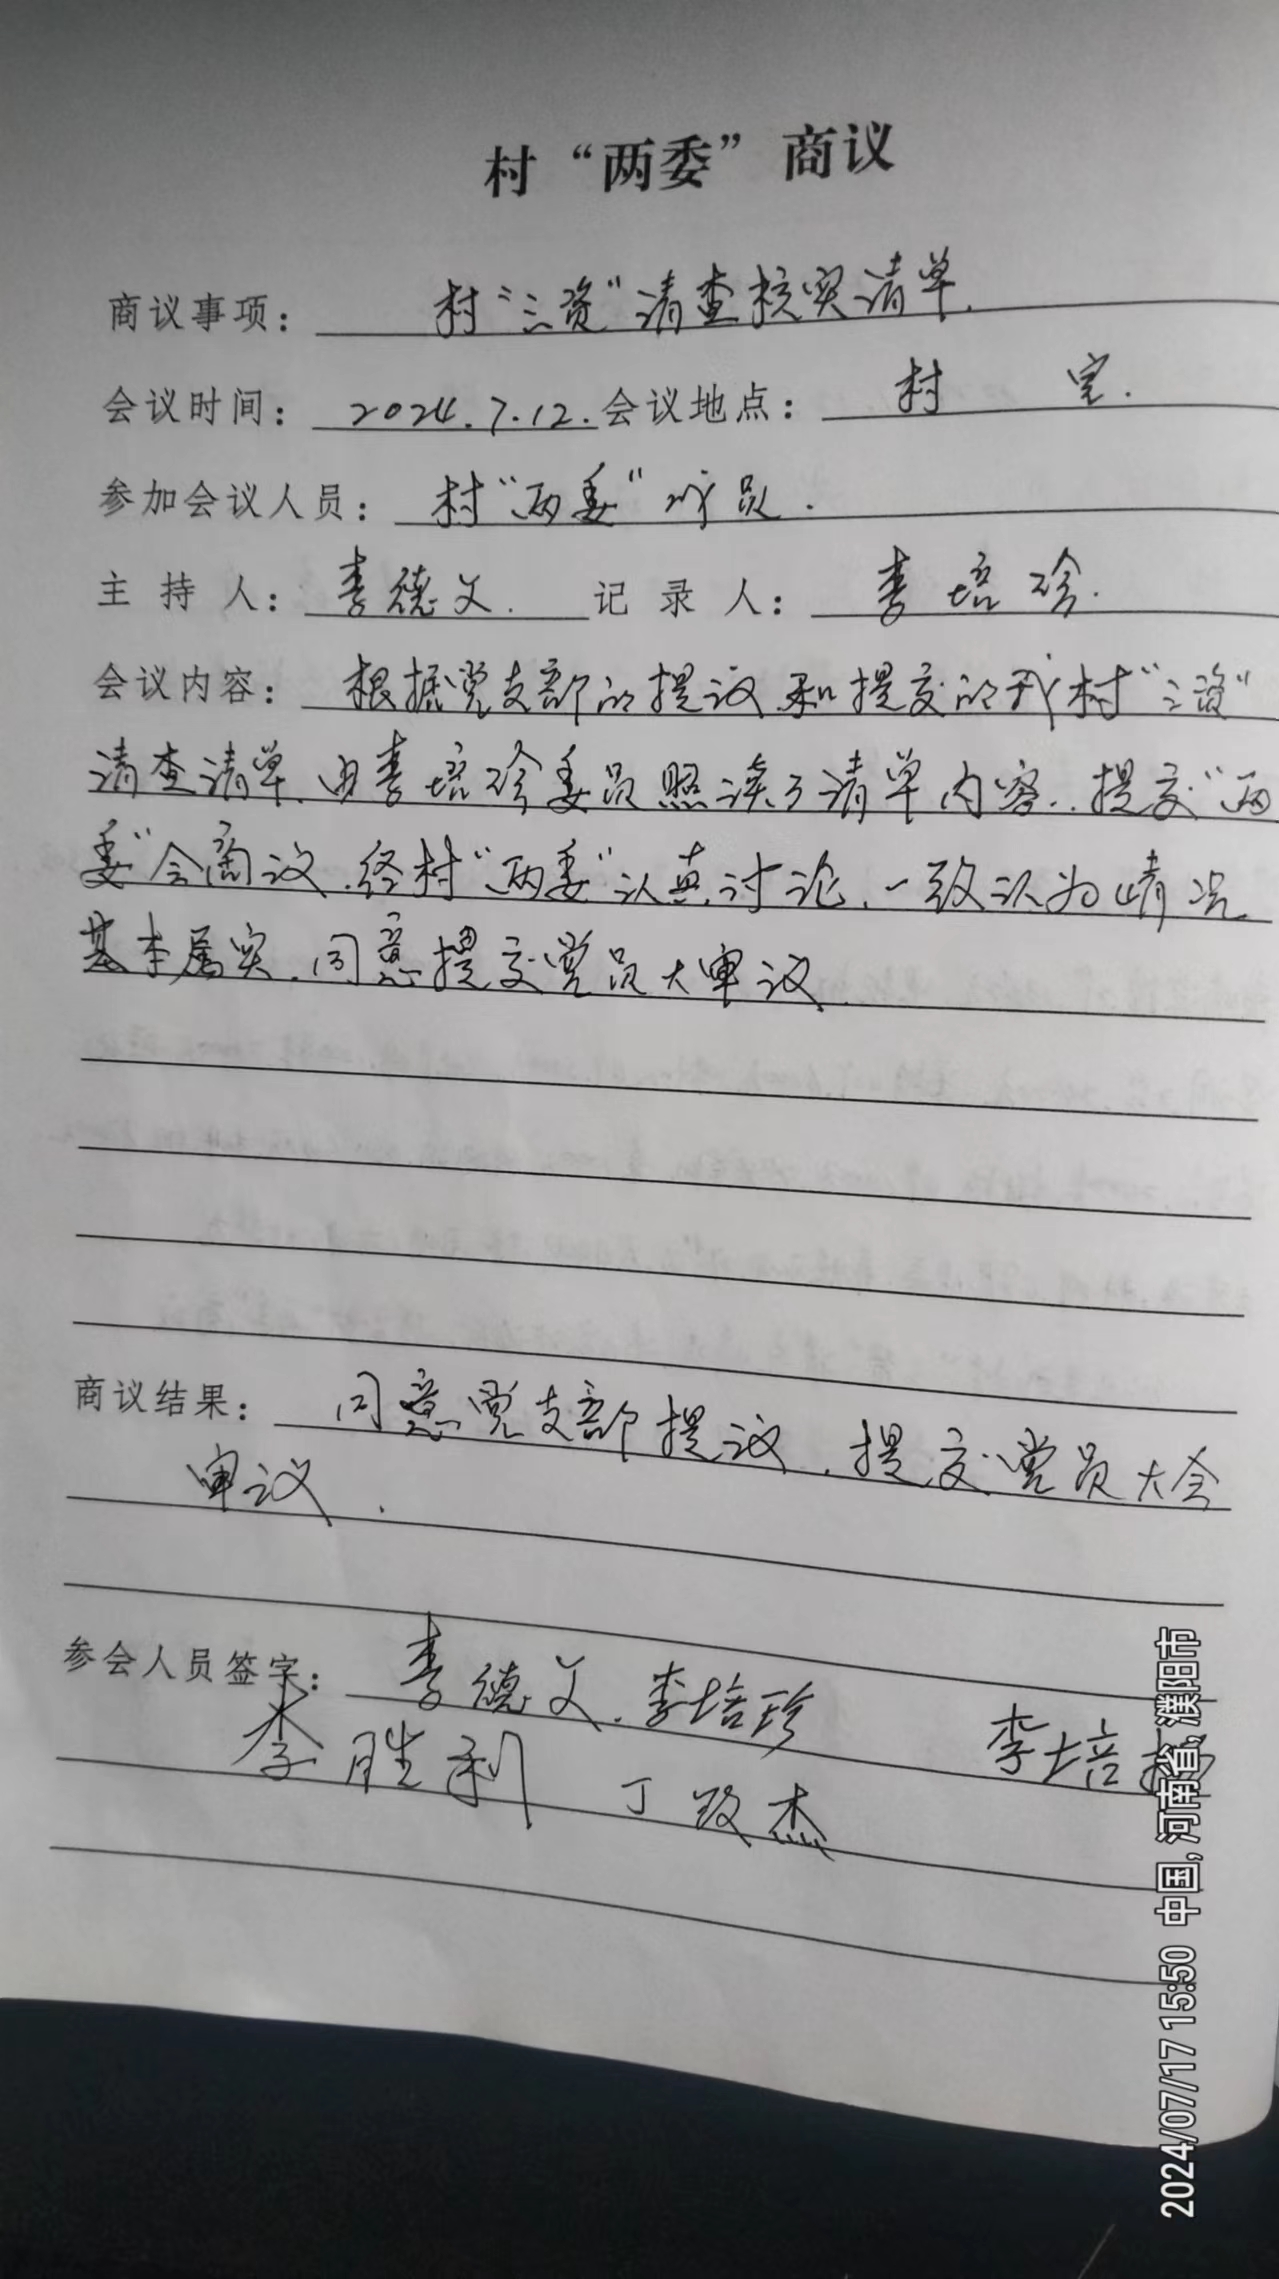 村“两委”商议
商议事项： 村“三资”清查核实清单.
会议时间： 2024.7.12. 会议地点： 村 室.
参加会议人员： 村“两委” 成员.
主 持 人： 李德文. 记 录 人： 李培珍.
会议内容： 根据党支部的提议和提交的我村“三资”
清查清单.由李培珍委员照读了清单内容..提交“两
委”会商议.经村“两委”认真讨论.一致认为情况
基本属实.同意提交党员大审议.
商议结果： 同意党支部提议.提交党员大会
审议.
参会人员签字： 李德文.李培珍 李培
李胜利 丁改杰
2024/07/17 15:50 中国,河南省,濮阳市